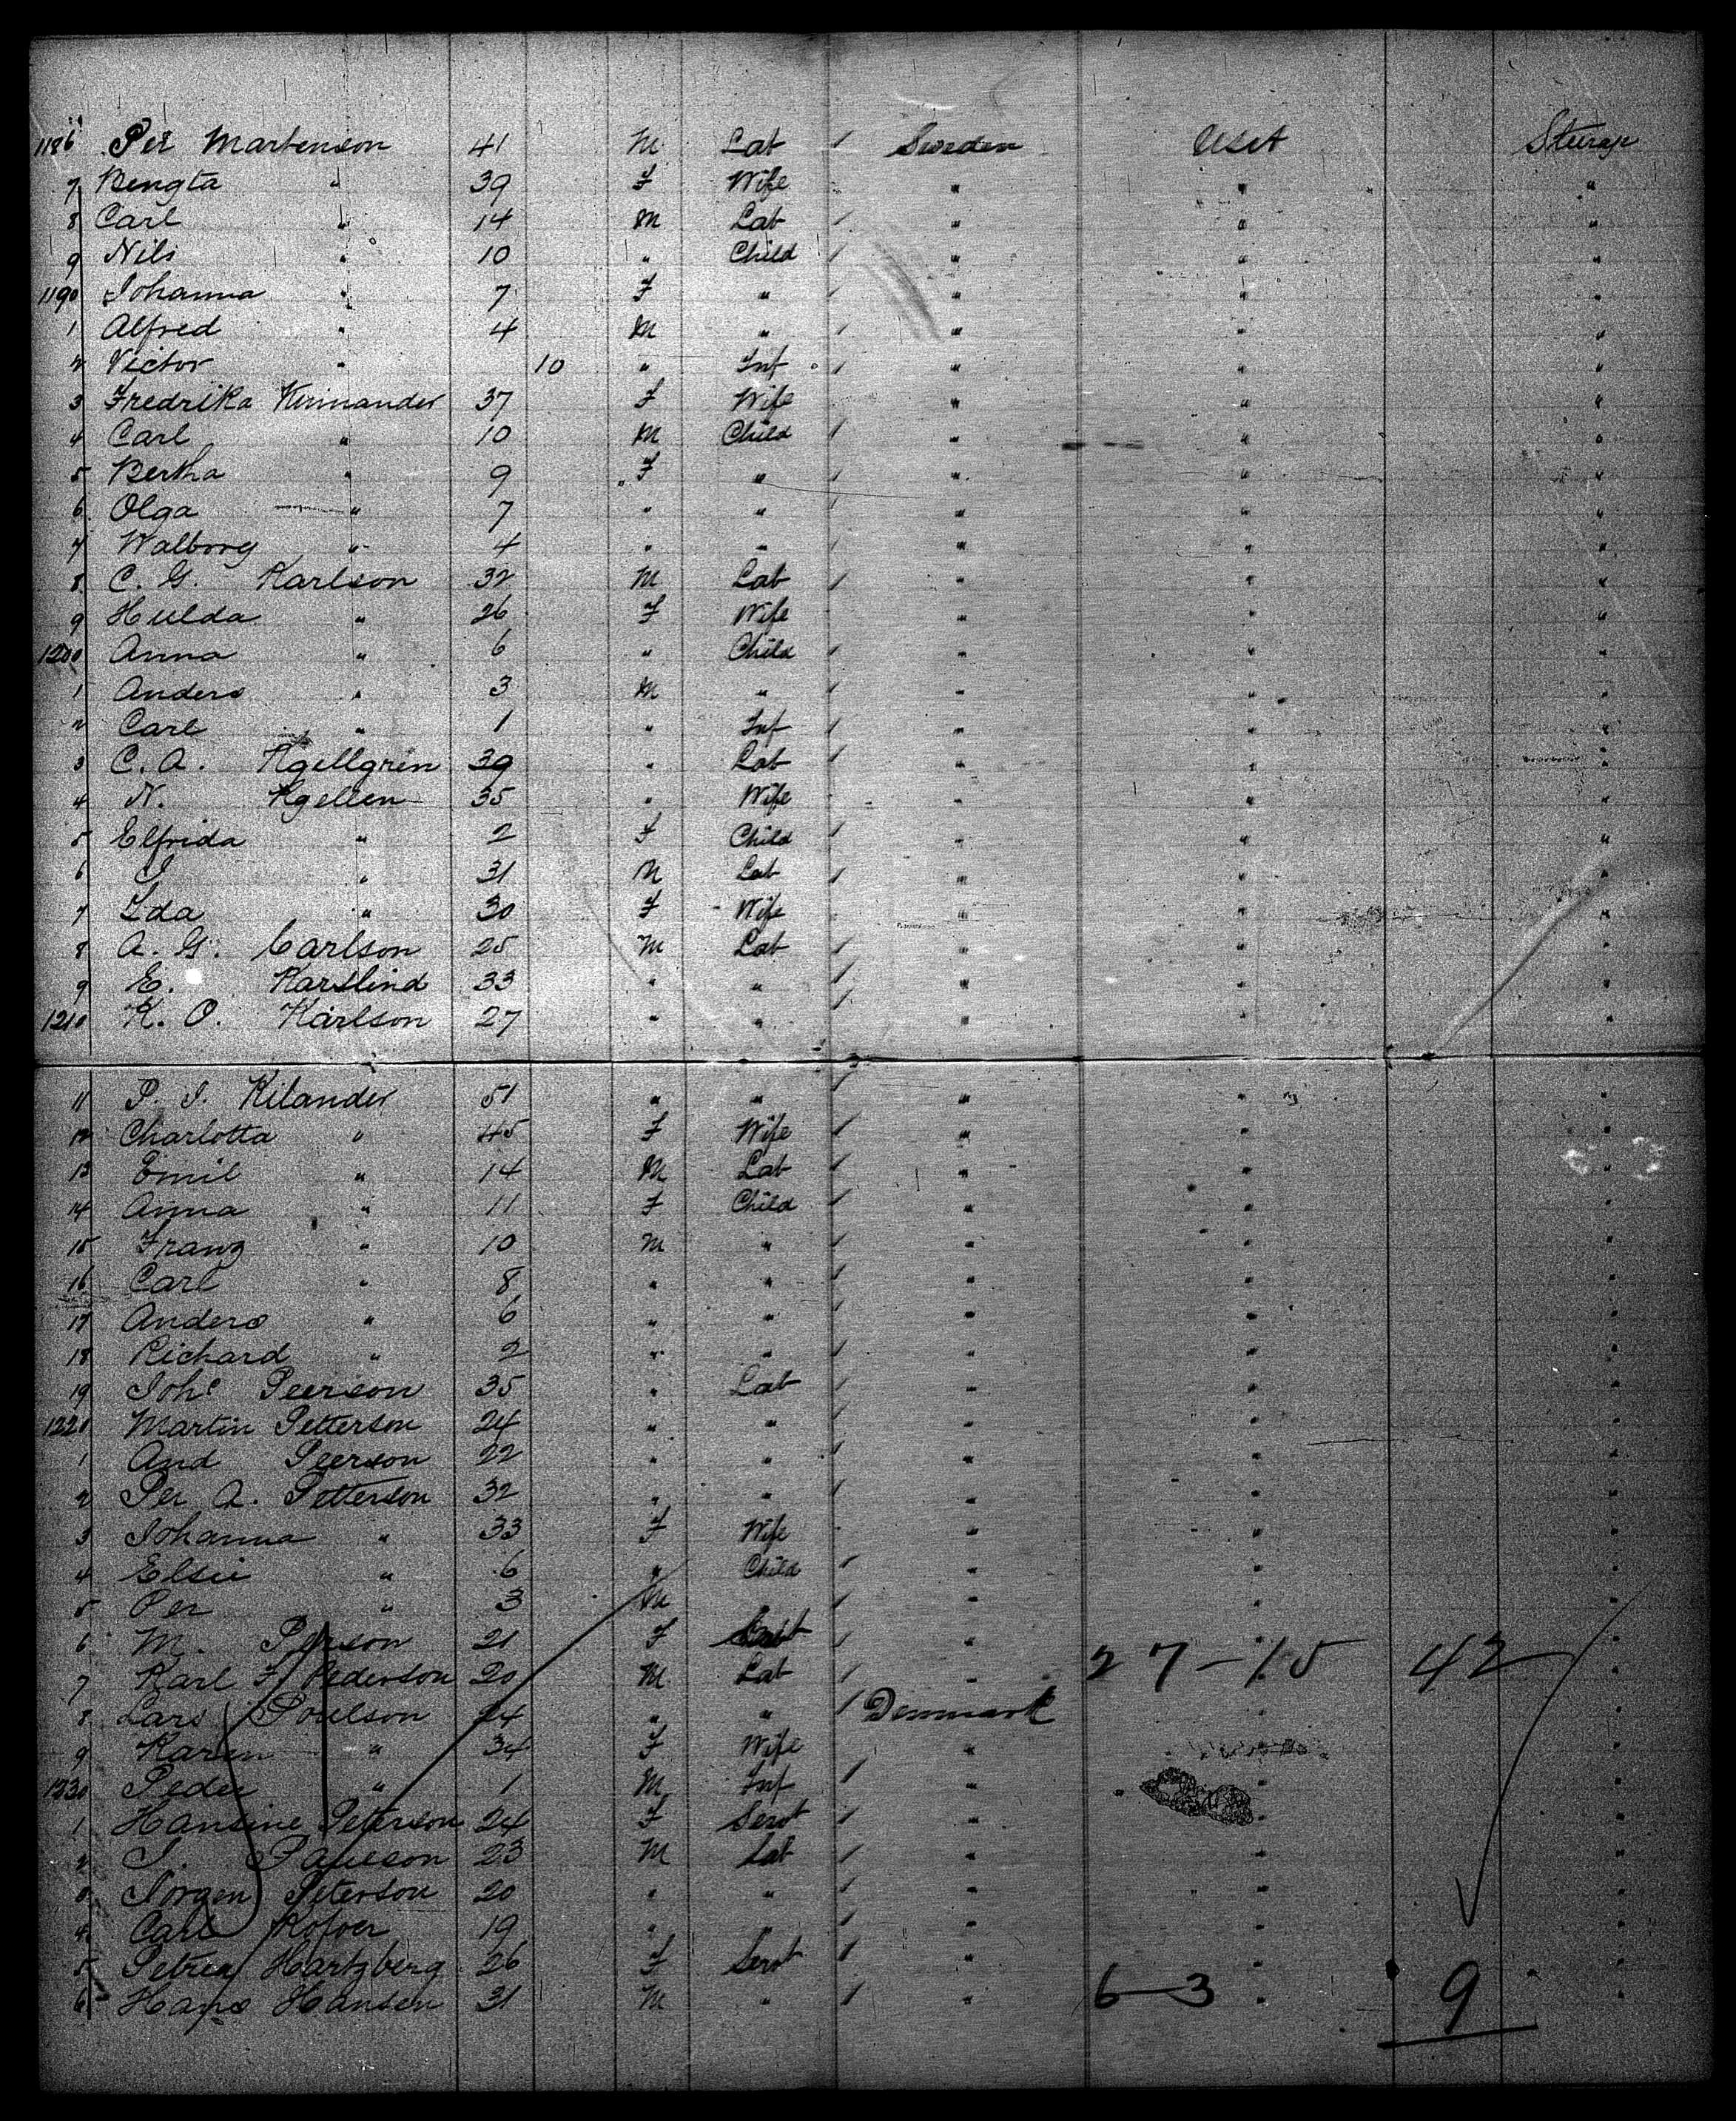 1186 Per Martenson 41 M Lab Sweden USA Steerage
7 Bengta " 39 F Wife " " "
8 Carl " 14 M Lab " " "
9 Nils " 10 " Child " " "
1190 Johanna " 7 F " " " "
1 Alfred " 4 M " " " "
2 Victor " 10 " Inf " " "
3 Fredrika 37 F Wife " " "
4 Carl " 10 M Child " " "
5 Bertha " 9 F " " " "
6 Olga " 7 " " " " "
7 Walborg " 4 " " " " "
8 C. G. Karlson 32 M Lab " " "
9 Hulda " 26 F Wife " " "
1200 Anna " 6 " Child " " "
1 Anders " 3 M " " " "
2 Carl " 1 " Inf " " "
3 C. A. Kgellgren 39 " Lab " " "
4 N. Kgellen 35 " Wife " " "
5 Elfrida " 2 F Child " " "
6 J " 31 M Lab " " "
7 Ida " 30 F Wife " " "
8 A. G. Carlson 25 M Lab " " "
9 E. Karslind 33 " " " " "
1210 K. O. Karlson 27 " " " " "
11 P. J. Kilander 51 " " " " "
12 Charlotta " 45 F Wife " " "
13 Emil " 14 M Lab " " "
14 Anna " 11 F Child " " "
15 Franz " 10 M " " " "
16 Carl " 8 " " " " "
17 Anders " 6 " " " " "
18 Richard " 2 " " " " "
19 Joh. Peerson 35 " Lab " " "
1220 Martin Petterson 24 " " " " "
1 And Peerson 22 " " " " "
2 Per A. Petterson 32 " " " " "
3 Johanna " 33 F Wife " " "
4 Elsie " 6 " Child " " "
5 Per " 3 M " " " "
6 M. Person 21 F " 27-15 42 "
7 Karl F. Pederson 20 M Lab " " "
8 Lars Poulson 24 " " Denmark " "
9 Karen " 34 F Wife " " "
1230 Peder " 1 M Inf " " "
1 Hansine Peterson 24 F Servt " " "
2 J. Paulson 23 M Lab " " "
3 Jorgen Peterson 20 " " " " "
4 Carl Kofoer 19 " " " " "
5 Petrea Hartzberg 26 F Servt " " "
6 Hans Hansen 31 M " " 6-3 " 9 "